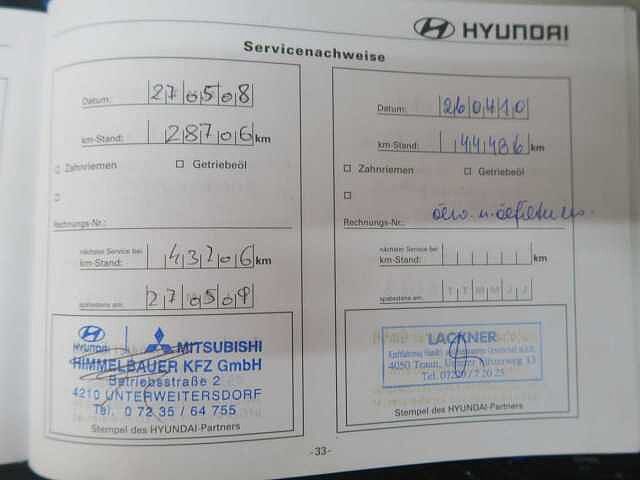 HYUNDAI
Servicenachweise
Datum: 27 05 08
km-Stand: 28706 km
Zahnriemen Getriebeöl
Rechnungs-Nr.:
nächster Service bei
km-Stand: 43206 km
spätestens am: 27 05 09
HYUNDAI MITSUBISHI
HIMMELBAUER KFZ GmbH
Betriebsstraße 2
4210 UNTERWEITERSDORF
Tel. 0 72 35 / 64 755
Stempel des HYUNDAI-Partners
Datum: 26 04 10
km-Stand: 44486 km
Zahnriemen Getriebeöl
Rechnungs-Nr.:
nächster Service bei
km-Stand: km
spätestens am: T T M M J J
LACKNER
4050 Traun,
Tel.
Stempel des HYUNDAI-Partners
-33-